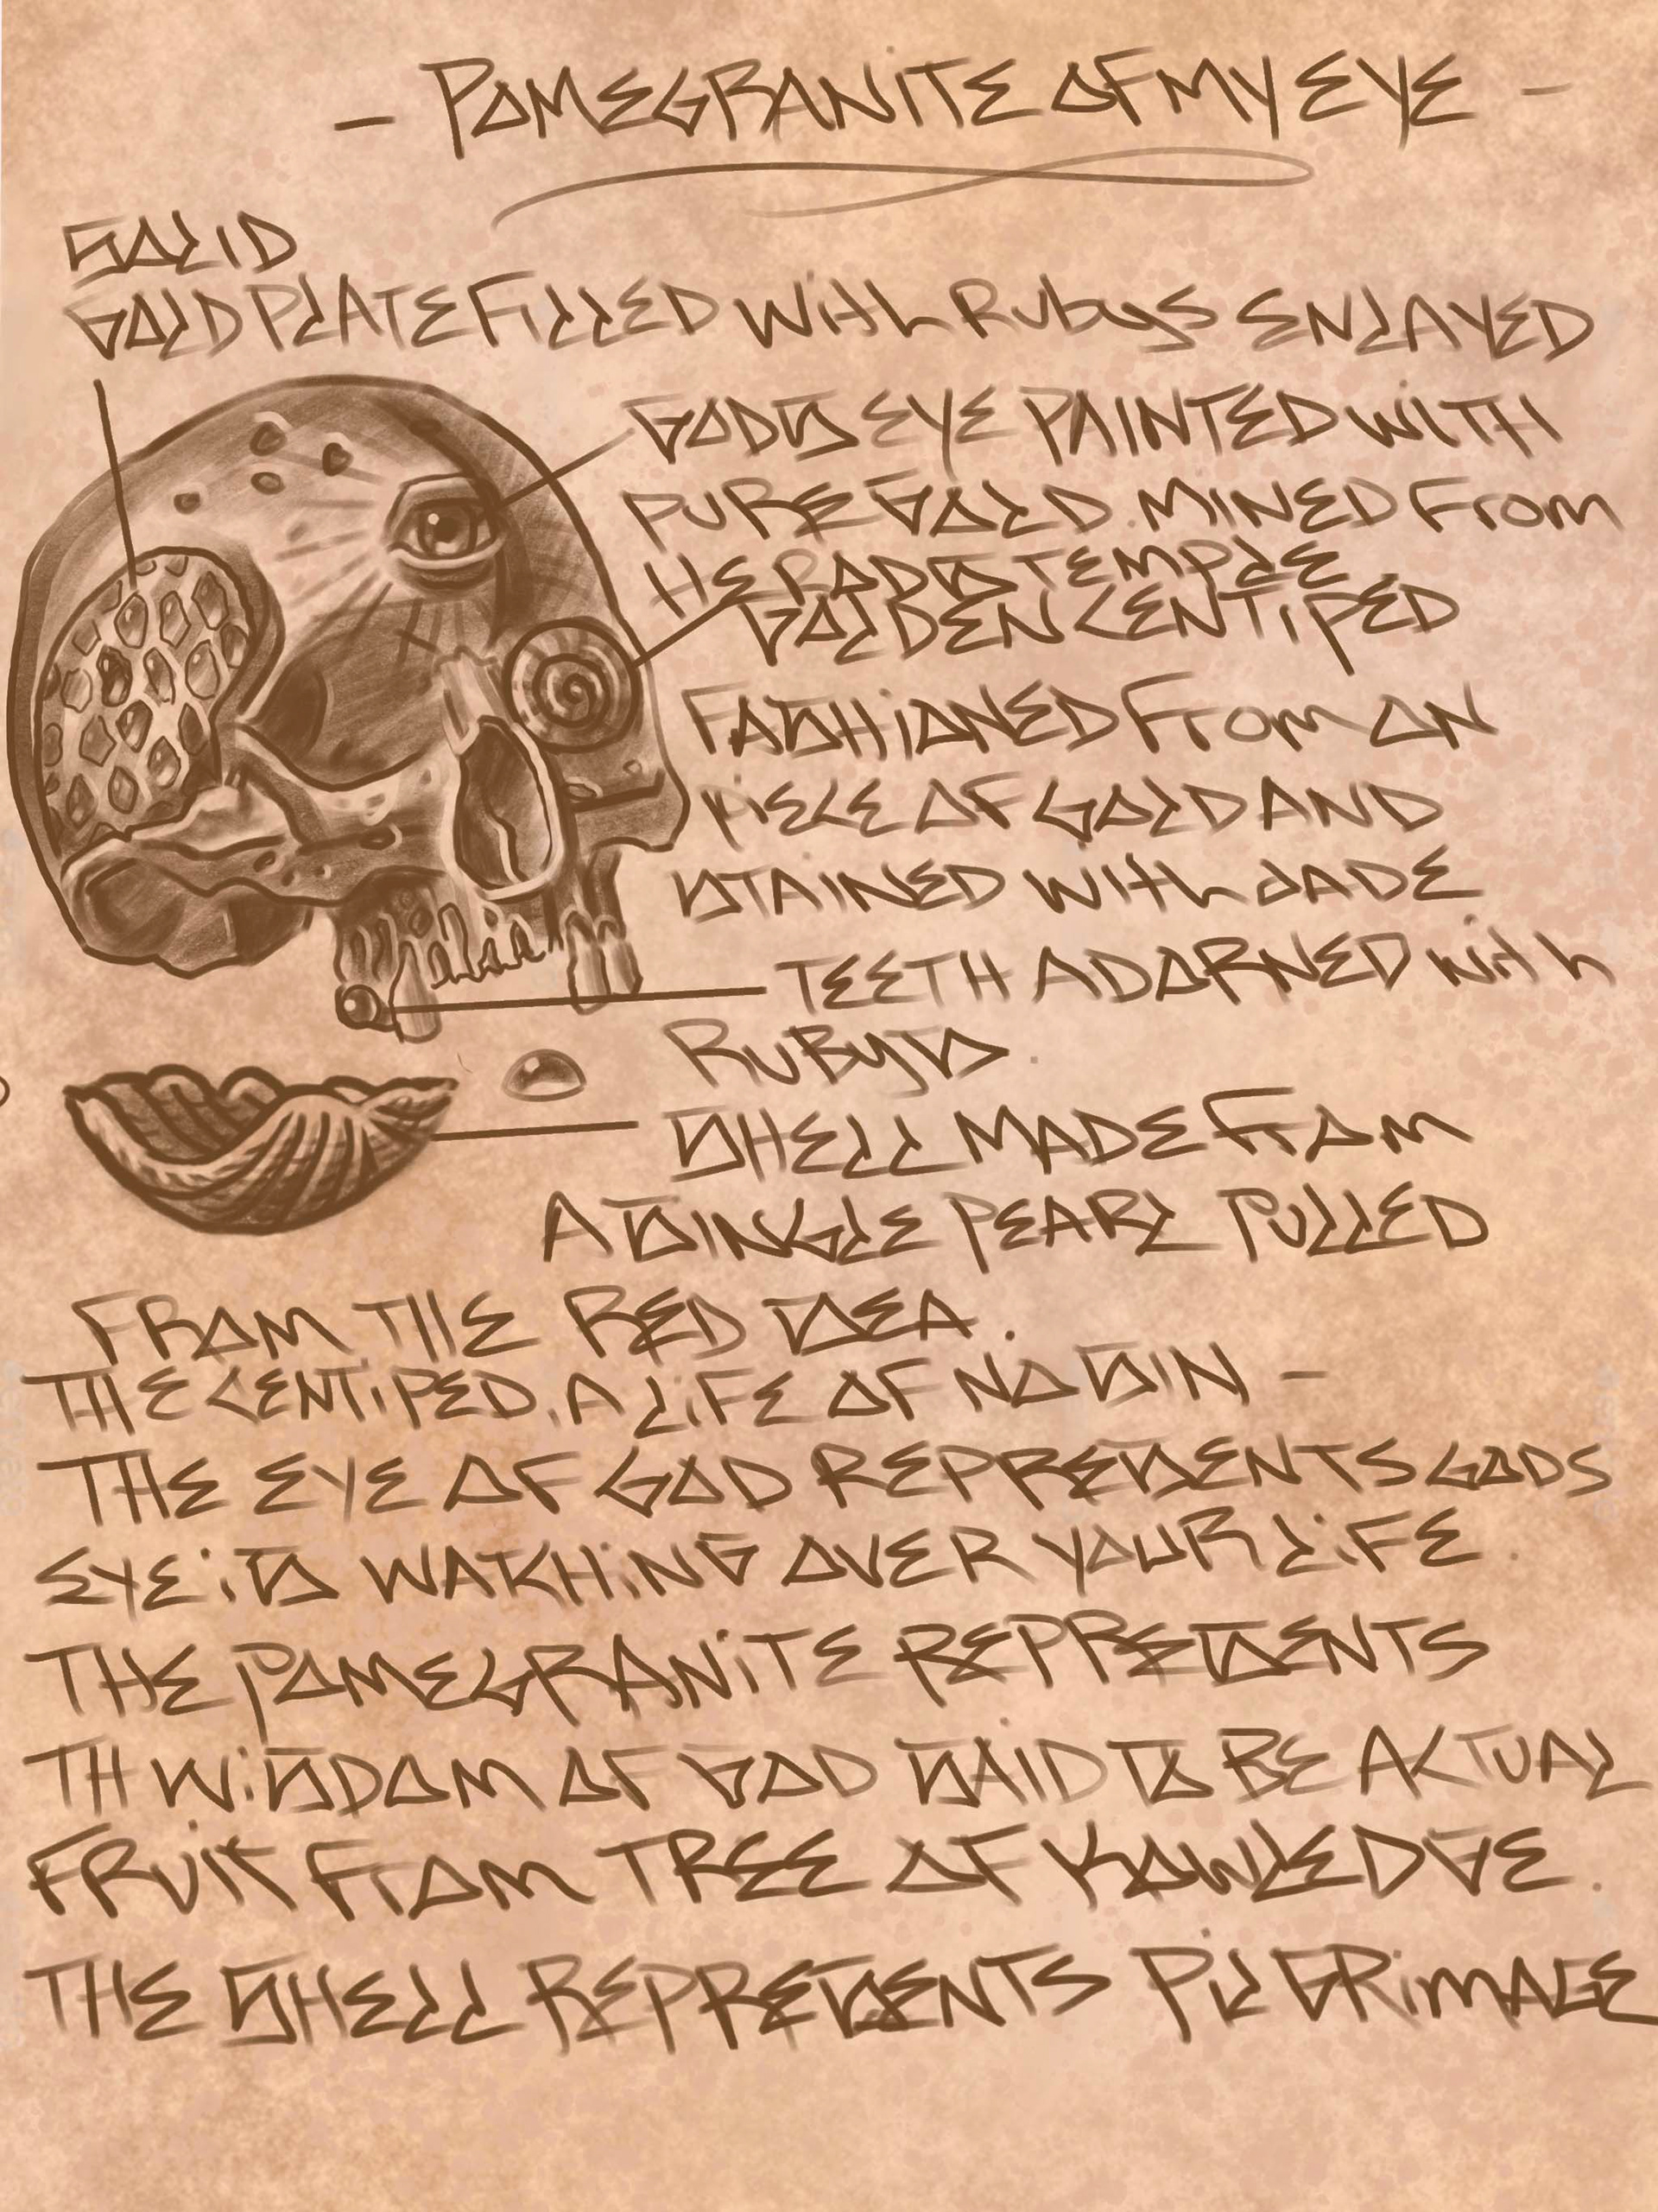 - POMEGRANITE OF MY EYE -
SOLID
GOLD PLATE FILLED WITH RUBYS ENLAYED
GODS EYE PAINTED WITH
PURE GOLD. MINED FROM
HERODS TEMPLE.
GOLDEN CENTIPED
FASHIONED FROM ON
PIECE OF GOLD AND
STAINED WITH JADE
TEETH ADORNED WITH
RUBYS.
SHELL MADE FROM
A SINGLE PEARL PULLED
FROM THE RED SEA.
THE CENTIPED. A LIFE OF NO SIN -
THE EYE OF GOD REPRESENTS GODS
EYE IS WATCHING OVER YOUR LIFE.
THE POMEGRANITE REPRESENTS
TH WISDOM OF GOD SAID TO BE ACTUAL
FRUIT FROM TREE OF KOWLEDGE.
THE SHELL REPRESENTS PILGRIMAGE